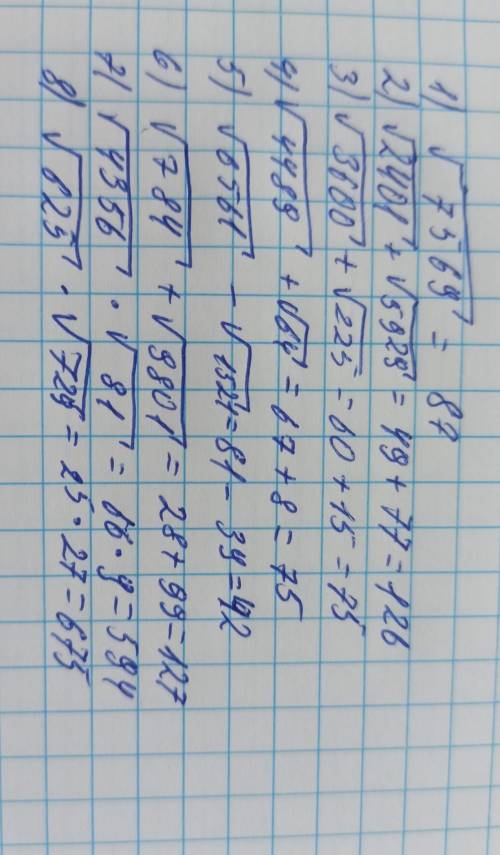 1) √7569 = 87
2) √2401 + √5929 = 49 + 77 = 126
3) √3600 + √225 = 60 + 15 = 75
4) √4489 + √64 = 67 + 8 = 75
5) √6561 - √1521 = 81 - 39 = 42
6) √784 + √9801 = 28 + 99 = 127
7) √4356 · √81 = 66 · 9 = 594
8) √625 · √729 = 25 · 27 = 675